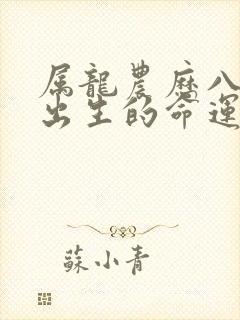 属龍農曆八
出生的命運
蘇小青